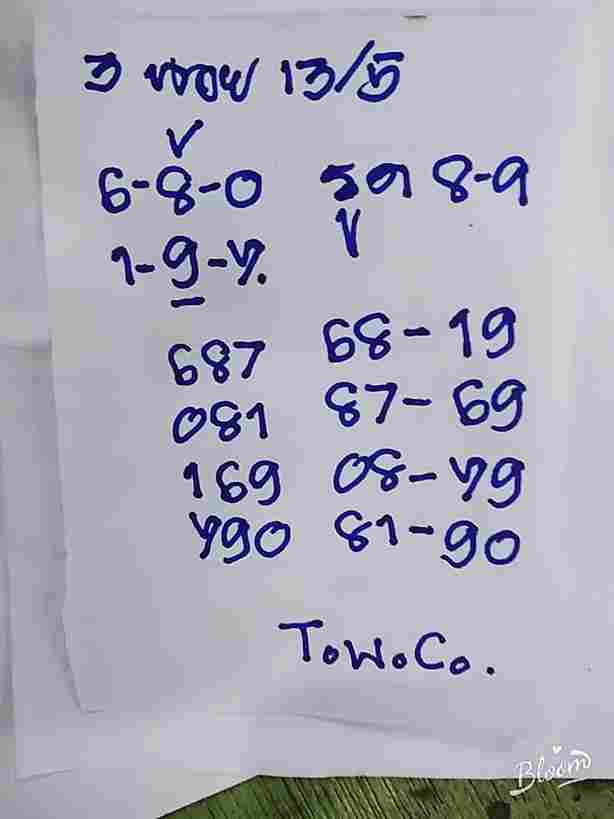 3 13/5
6-8-0 รูด 8-9
1-9-7.
687 68-19
081 87-69
169 08-79
790 81-90
T.W.Co.
Bloom